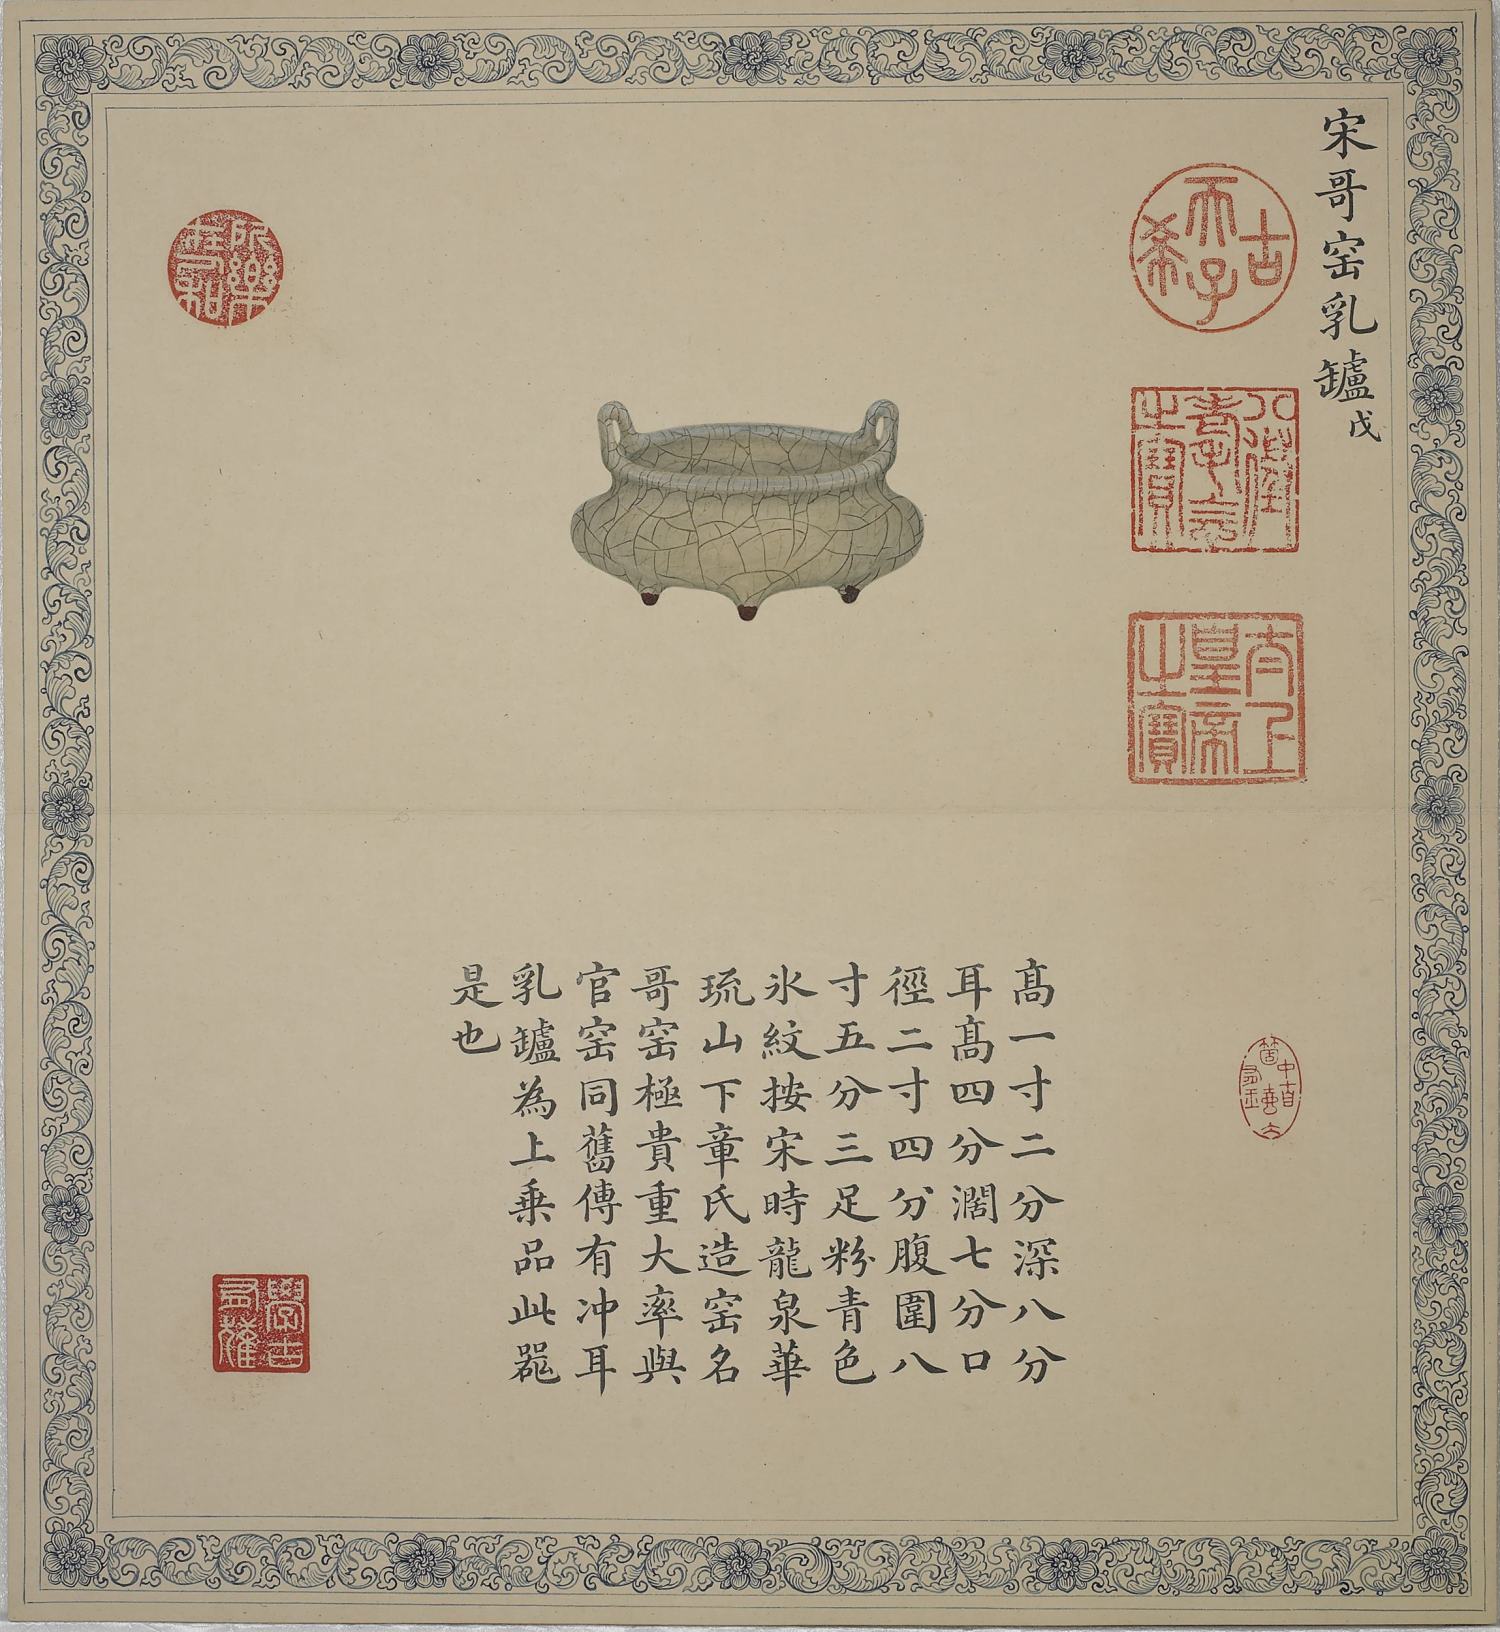 宋哥窑乳罏戊
古希天子
八徵耄念之寶
太上皇帝之寶
所樂在人和
高一寸二分深八分
耳高四分濶七分口
徑二寸四分腹圍八
寸五分三足粉青色
氷紋按宋時龍泉華
琉山下章氏造窑名
哥窑極貴重大率與
官窑同舊傳有冲耳
乳罏為上乗品此器
是也
學古有獲